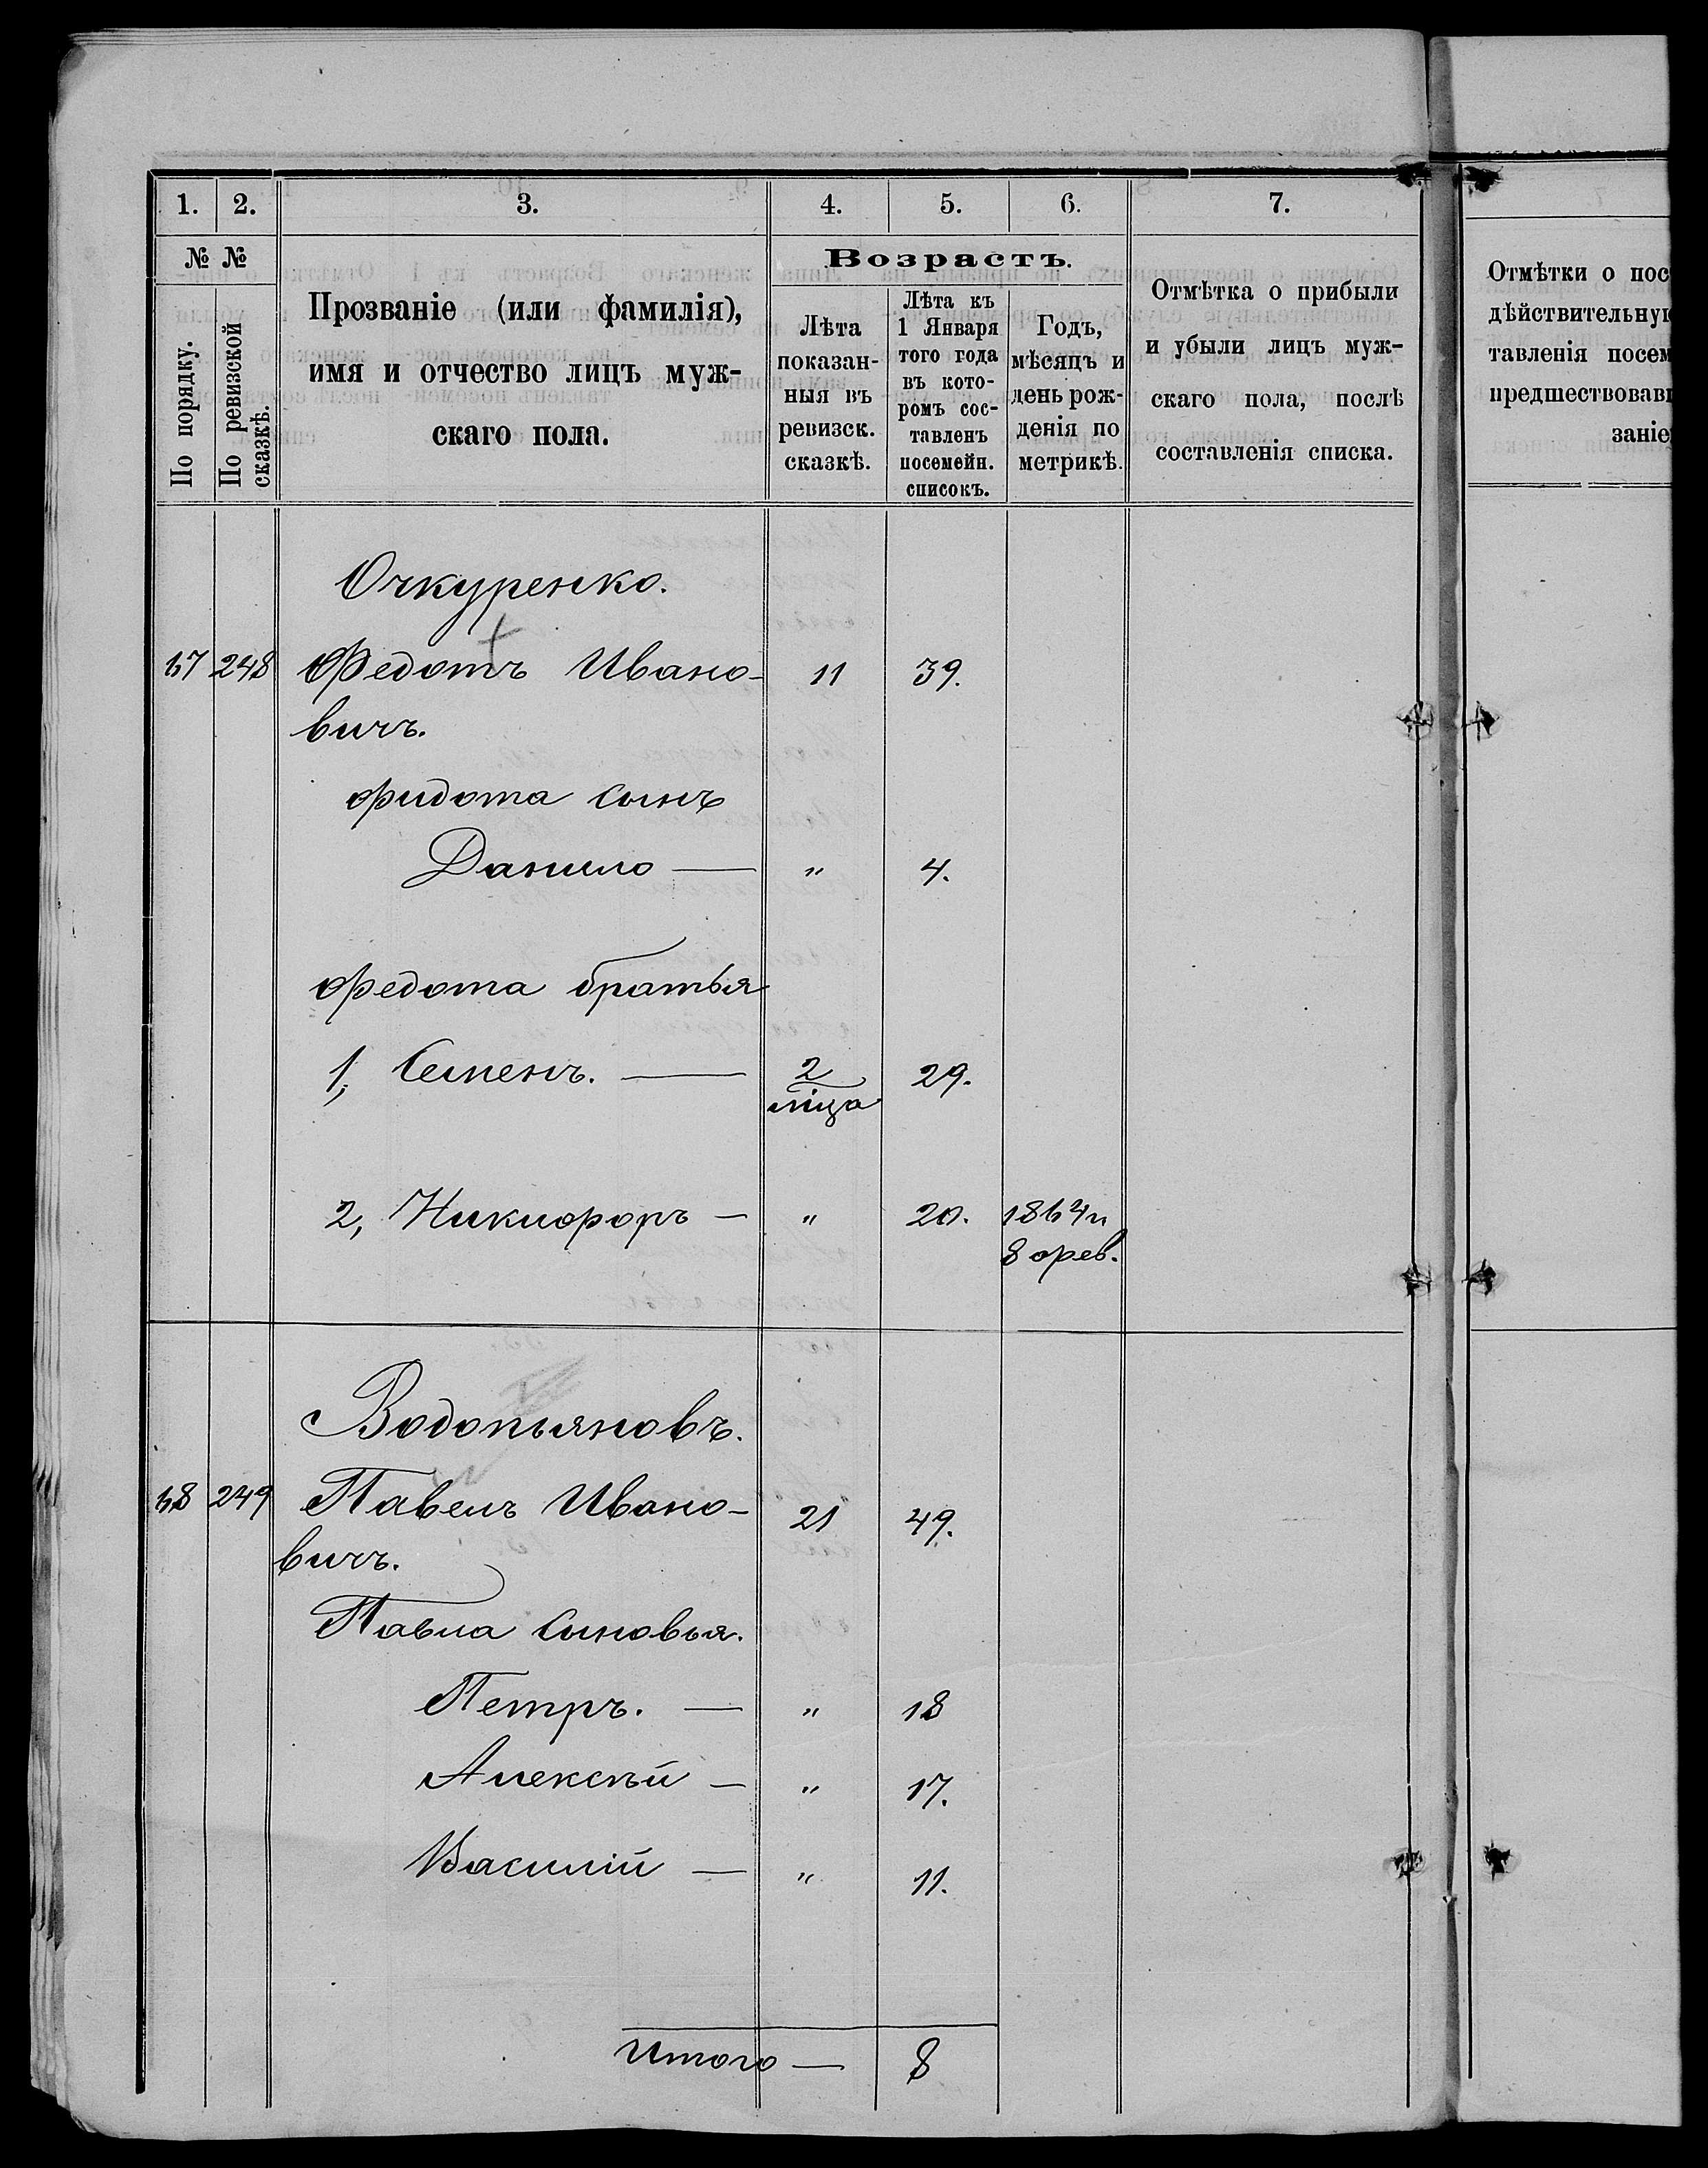 1. 2. 3. 4. 5. 6. 7.
№ №
По порядку.
По ревизской сказкѣ.
Прозваніе (или фамилія),
имя и отчество лицъ муж-
скаго пола.
Возрастъ.
Лѣта
показан-
ныя въ
ревизск.
сказкѣ.
Лѣта къ
1 Января
того года
въ кото-
ромъ сос-
тавленъ
посемейн.
списокъ.
Годъ,
мѣсяцъ и
день рож-
денія по
метрикѣ.
Отмѣтка о прибыли
и убыли лицъ муж-
скаго пола, послѣ
составленія списка.
Отмѣтки о пос
дѣйствительну
тавленія посем
предшествовав
заніе
Очкуренко.
67 248 Федотъ Ивано- 11 39.
вичъ.
Фидота сынъ
Данило — " 4.
Федота братья
1, Семенъ. — 2 29.
міца
2, Никифоръ — " 20. 1864 г
8 фев.
Водопьяновъ.
68 249 Павелъ Ивано- 21 49.
вичъ.
Павла сыновья.
Петръ. — " 18
Алексѣй — " 17.
Василій — " 11.
Итого — 8